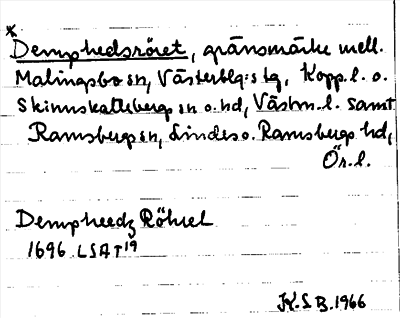 *
Demphedsröret, gränsmärke mell.
Malingsbo sn, Västerblg:s tg, Kopp. l. o.
Skinnskattebergs sn o. hd, Västm. l. samt
Ramsbergs sn, Lindes o. Ramsbergs hd,
Ör. l.
Dempheedz Röhsel
1696 LSA T19
K.S.B. 1966